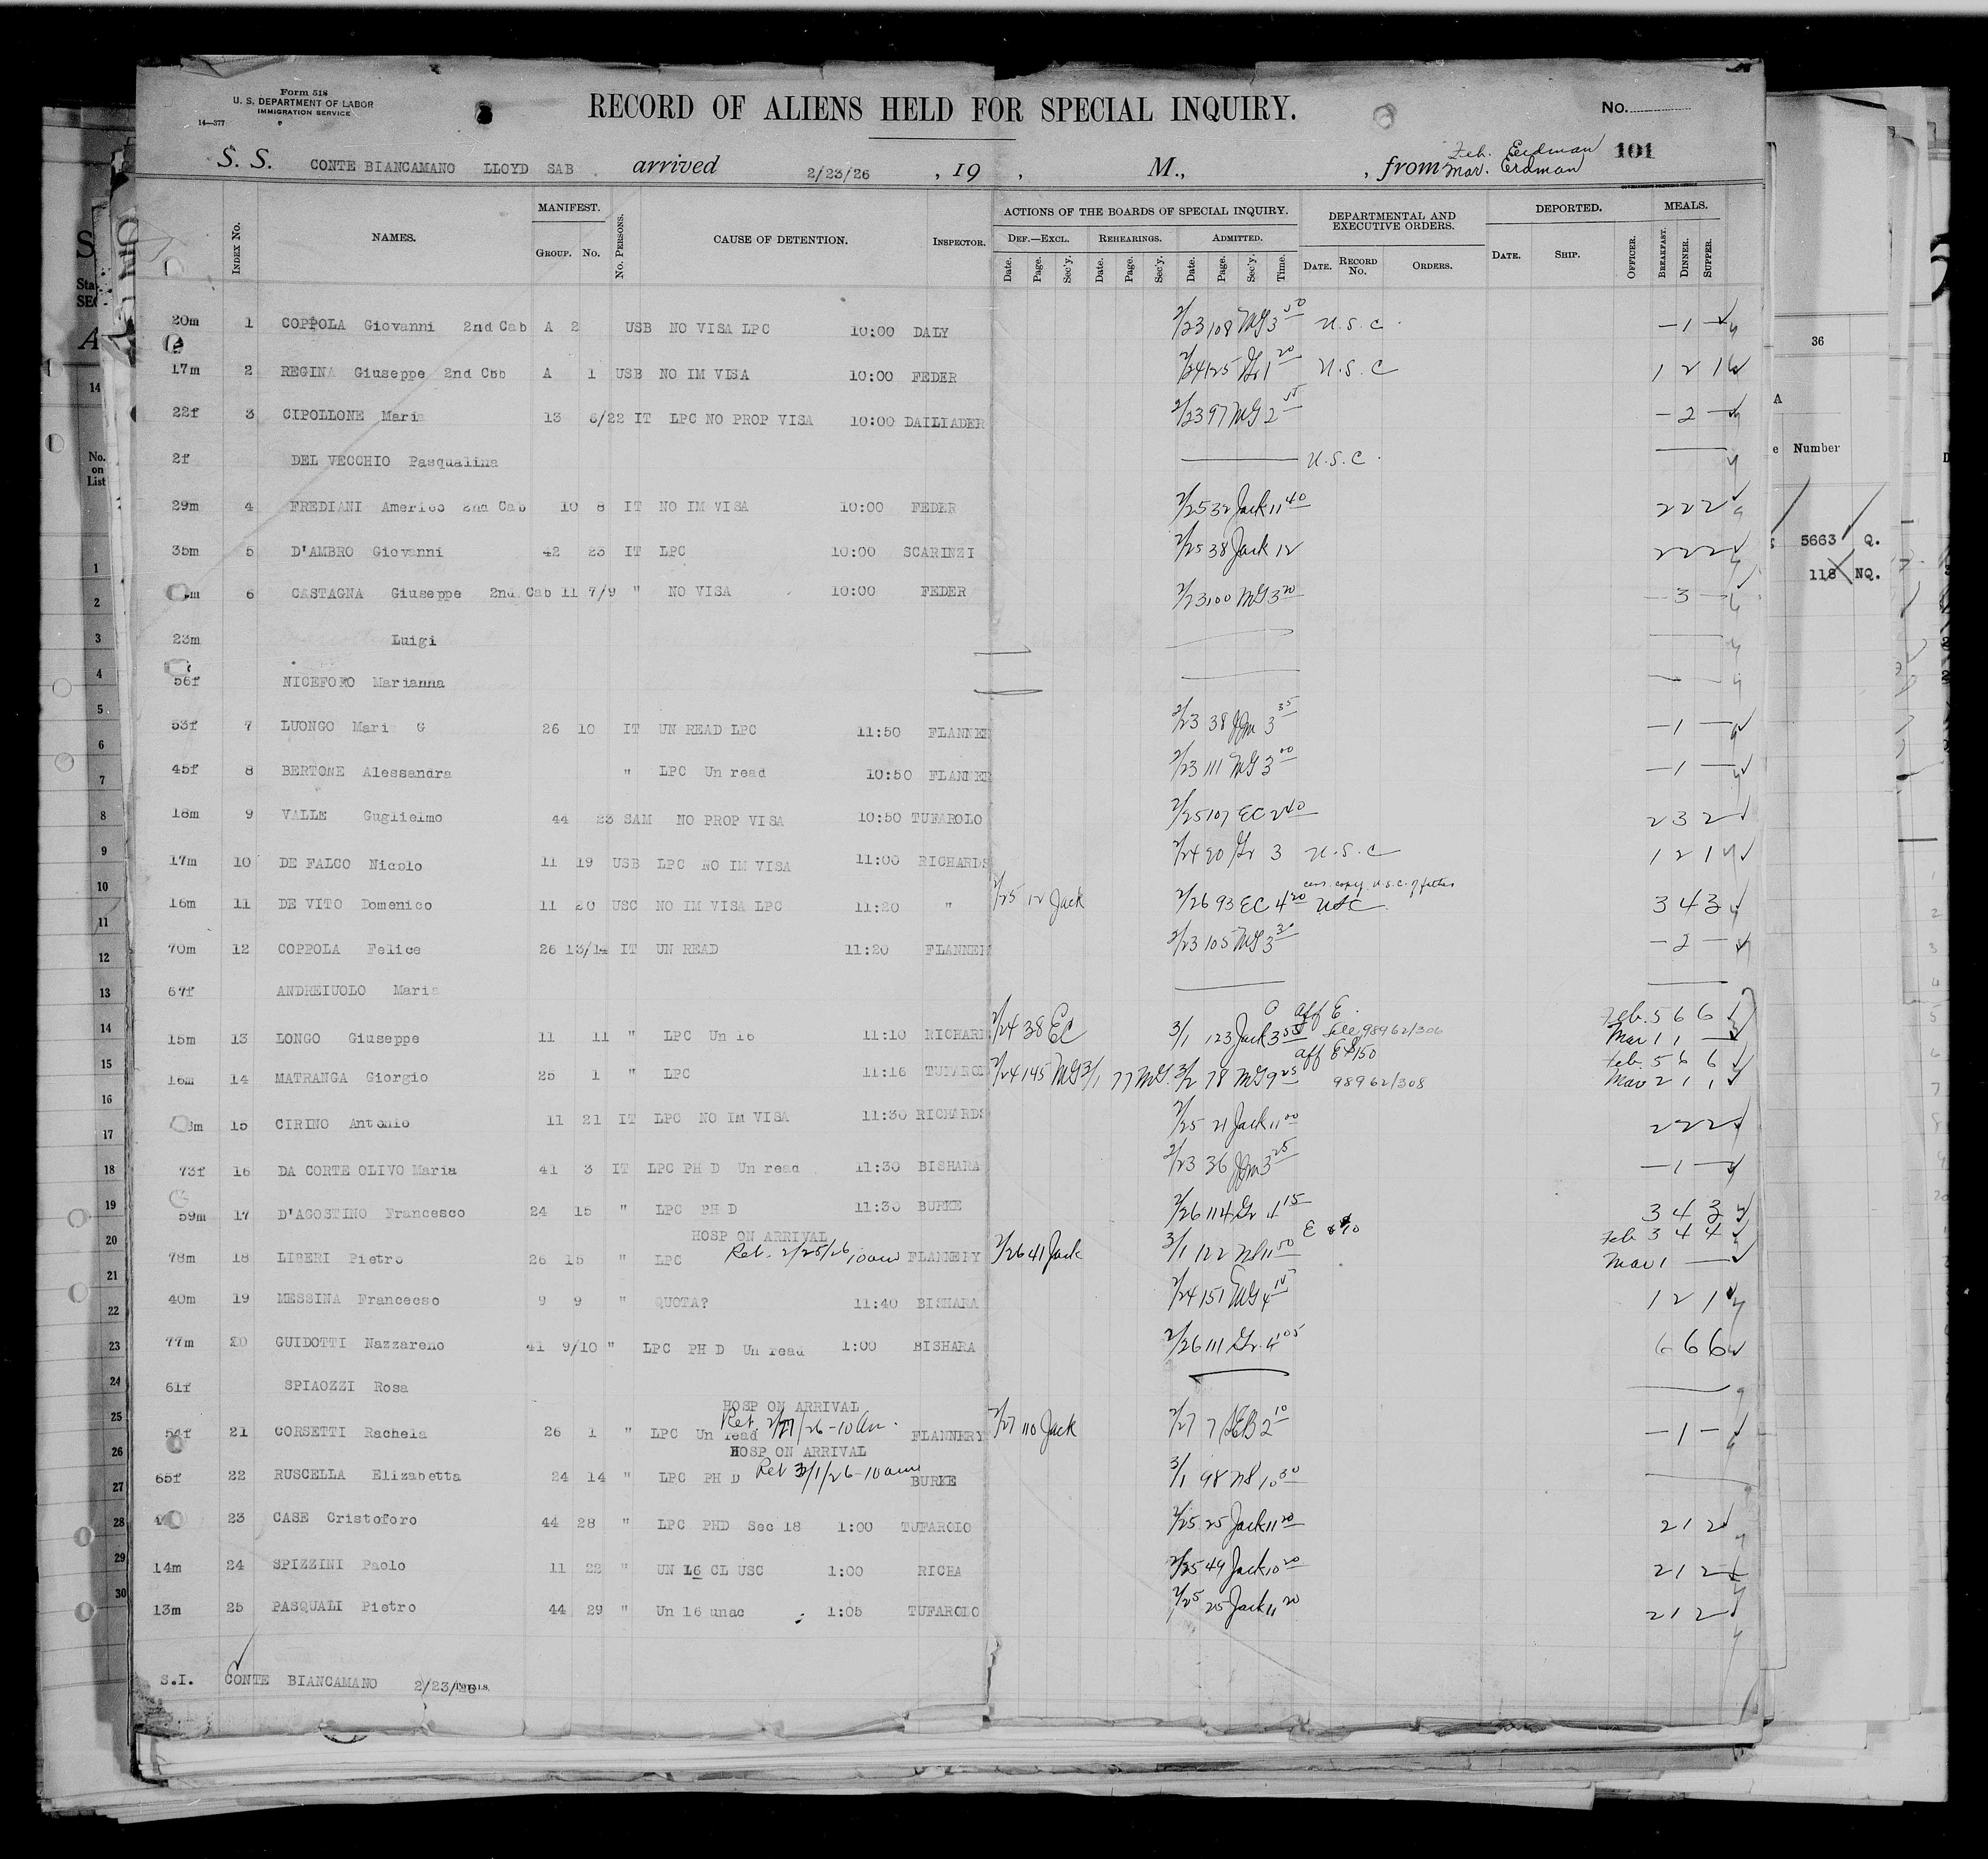 Form 518
U. S. DEPARTMENT OF LABOR
IMMIGRATION SERVICE
14—377
RECORD OF ALIENS HELD FOR SPECIAL INQUIRY.
No.
101
S. S. CONTE BIANCAMANO LLOYD SAB arrived 2/23/26 , 19 , M., , from Feb. Erdman
Mar. Erdman
INDEX No. NAMES. MANIFEST. GROUP. No. No. PERSONS. CAUSE OF DETENTION. INSPECTOR.
ACTIONS OF THE BOARDS OF SPECIAL INQUIRY. DEF.—EXCL. REHEARINGS. ADMITTED.
Date. Page. Sec'y. Date. Page. Sec'y. Date. Page. Sec'y. Time.
DEPARTMENTAL AND EXECUTIVE ORDERS. DATE. RECORD No. ORDERS.
DEPORTED. DATE. SHIP. OFFICER. MEALS. BREAKFAST. DINNER. SUPPER.
20m 1 COPPOLA Giovanni 2nd Cab A 2 USB NO VISA LPC 10:00 DALY 2/23 108 MG 3 50 U.S.C. — 1 —
17m 2 REGINA Giuseppe 2nd Cbb A 1 USB NO IM VISA 10:00 FEDER 2/24 125 Gr 1 20 U.S.C 1 2 1
22f 3 CIPOLLONE Maria 13 6/22 IT LPC NO PROP VISA 10:00 DAILIADER 2/23 97 MG 2 55 — 2 —
2f DEL VECCHIO Pasqualina U.S.C.
29m 4 FREDIANI Americo 2nd Cab 10 8 IT NO IM VISA 10:00 FEDER 2/25 32 Jack 11 40 2 2 2
35m 5 D'AMBRO Giovanni 42 23 IT LPC 10:00 SCARINZI 2/25 38 Jack 12 2 2 2
m 6 CASTAGNA Giuseppe 2nd Cab 11 7/9 " NO VISA 10:00 FEDER 2/23 100 MG 3 20 — 3 —
23m Luigi
56f NICEFORO Marianna
53f 7 LUONGO Mari G 26 10 IT UN READ LPC 11:50 FLANNE 2/23 38 3 35 — 1 —
45f 8 BERTONE Alessandra " LPC Un read 10:50 FLANNE 2/23 111 MG 3 00 — 1 —
18m 9 VALLE Guglielmo 44 23 SAM NO PROP VISA 10:50 TUFAROLO 2/25 107 EC 2 40 2 3 2
17m 10 DE FALCO Nicolo 11 19 USB LPC NO IM VISA 11:00 RICHARDS 2/24 90 Gr 3 U.S.C 1 2 1
16m 11 DE VITO Domenico 11 20 USC NO IM VISA LPC 11:20 " 2/25 12 Jack 2/26 93 EC 4 20 USC copy U.S.C. of father 3 4 3
70m 12 COPPOLA Felice 26 13/14 IT UN READ 11:20 FLANNE 2/23 105 MG 3 30 — 2 —
67f ANDREIUOLO Maria
15m 13 LONGO Giuseppe 11 11 " LPC Un 16 11:10 RICHARD 2/24 38 EC 3/1 123 Jack 3 55 aff E file 98962/306 Feb. 5 6 6
Mar 1 1 —
16m 14 MATRANGA Giorgio 25 1 " LPC 11:16 TUFARO 2/24 145 MG 3/1 77 MG 3/2 78 MG 9 25 aff E $150 98962/308 Feb. 5 6 6
Mar 2 1 1
m 15 CIRINO Antonio 11 21 IT LPC NO IM VISA 11:30 RICHARDS 2/25 21 Jack 11 00 2 2 2
73f 16 DA CORTE OLIVO Maria 41 3 IT LPC PH D Un read 11:30 BISHARA 2/23 36 3 25 — 1 —
59m 17 D'AGOSTINO Francesco 24 15 " LPC PH D 11:30 BURKE 2/26 114 Gr 4 15 3 4 3
HOSP ON ARRIVAL
78m 18 LIBERI Pietro 26 15 " LPC Ret. 2/25/26 10am FLANNERY 2/26 41 Jack 3/1 122 11 50 E Feb 3 4 4
Mar 1 —
40m 19 MESSINA Francecso 9 9 " QUOTA? 11:40 BISHARA 2/24 151 MG 4 15 1 2 1
77m 20 GUIDOTTI Nazzareno 41 9/10 " LPC PH D Un read 1:00 BISHARA 2/26 111 Gr. 4 05 6 6 6
61f SPIAOZZI Rosa
HOSP ON ARRIVAL
54f 21 CORSETTI Rachela 26 1 " LPC Un read Ret. 2/27/26-10am FLANNERY 2/27 110 Jack 2/27 7 2 10 — 1 —
HOSP ON ARRIVAL
65f 22 RUSCELLA Elizabetta 24 14 " LPC PH D Ret 3/1/26-10am BURKE 3/1 98 10 30
23 CASE Cristoforo 44 28 " LPC PHD Sec 18 1:00 TUFAROLO 2/25 25 Jack 11 20 2 1 2
14m 24 SPIZZINI Paolo 11 22 " UN 16 CL USC 1:00 RICHA 2/25 49 Jack 10 20 2 1 2
13m 25 PASQUALI Pietro 44 29 " Un 16 unac 1:05 TUFAROLO 2/25 25 Jack 11 20 2 1 2
S.I. CONTE BIANCAMANO 2/23/26
TOTALS.
No.
on
List
1
2
3
4
5
6
7
8
9
10
11
12
13
14
15
16
17
18
19
20
21
22
23
24
25
26
27
28
29
30
36
Number
5663 Q.
118 NQ.